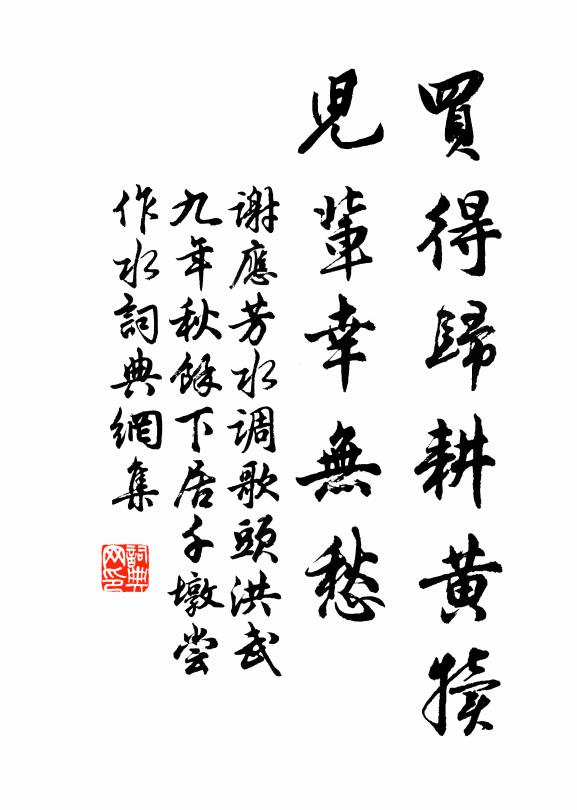 買得歸耕黃犢
兒輩幸無愁
谢應芳水调歌頭洪武
九年秋餘下居千墩尝
作水詞典網集
詞典网印